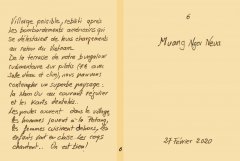 Village paisible, rebâti après
les bombardements américains qui
se délestaient de leurs chargements
au retour du Vietnam.
De la terrasse de notre bungalow
rudimentaire sur pilotis (7€ avec
salle d'eau et clim), nous pouvons
contempler un superbe paysage :
la Nam Ou au courant régulier
et les karsts dentelés.
Les poules courent dans le village
les hommes jouent à la Pétanq,
les femmes cuisinent dehors, les
enfants font en classe les corps
chantent... On est bien !
6
6
Muang Ngoi Neua
27 Février 2020